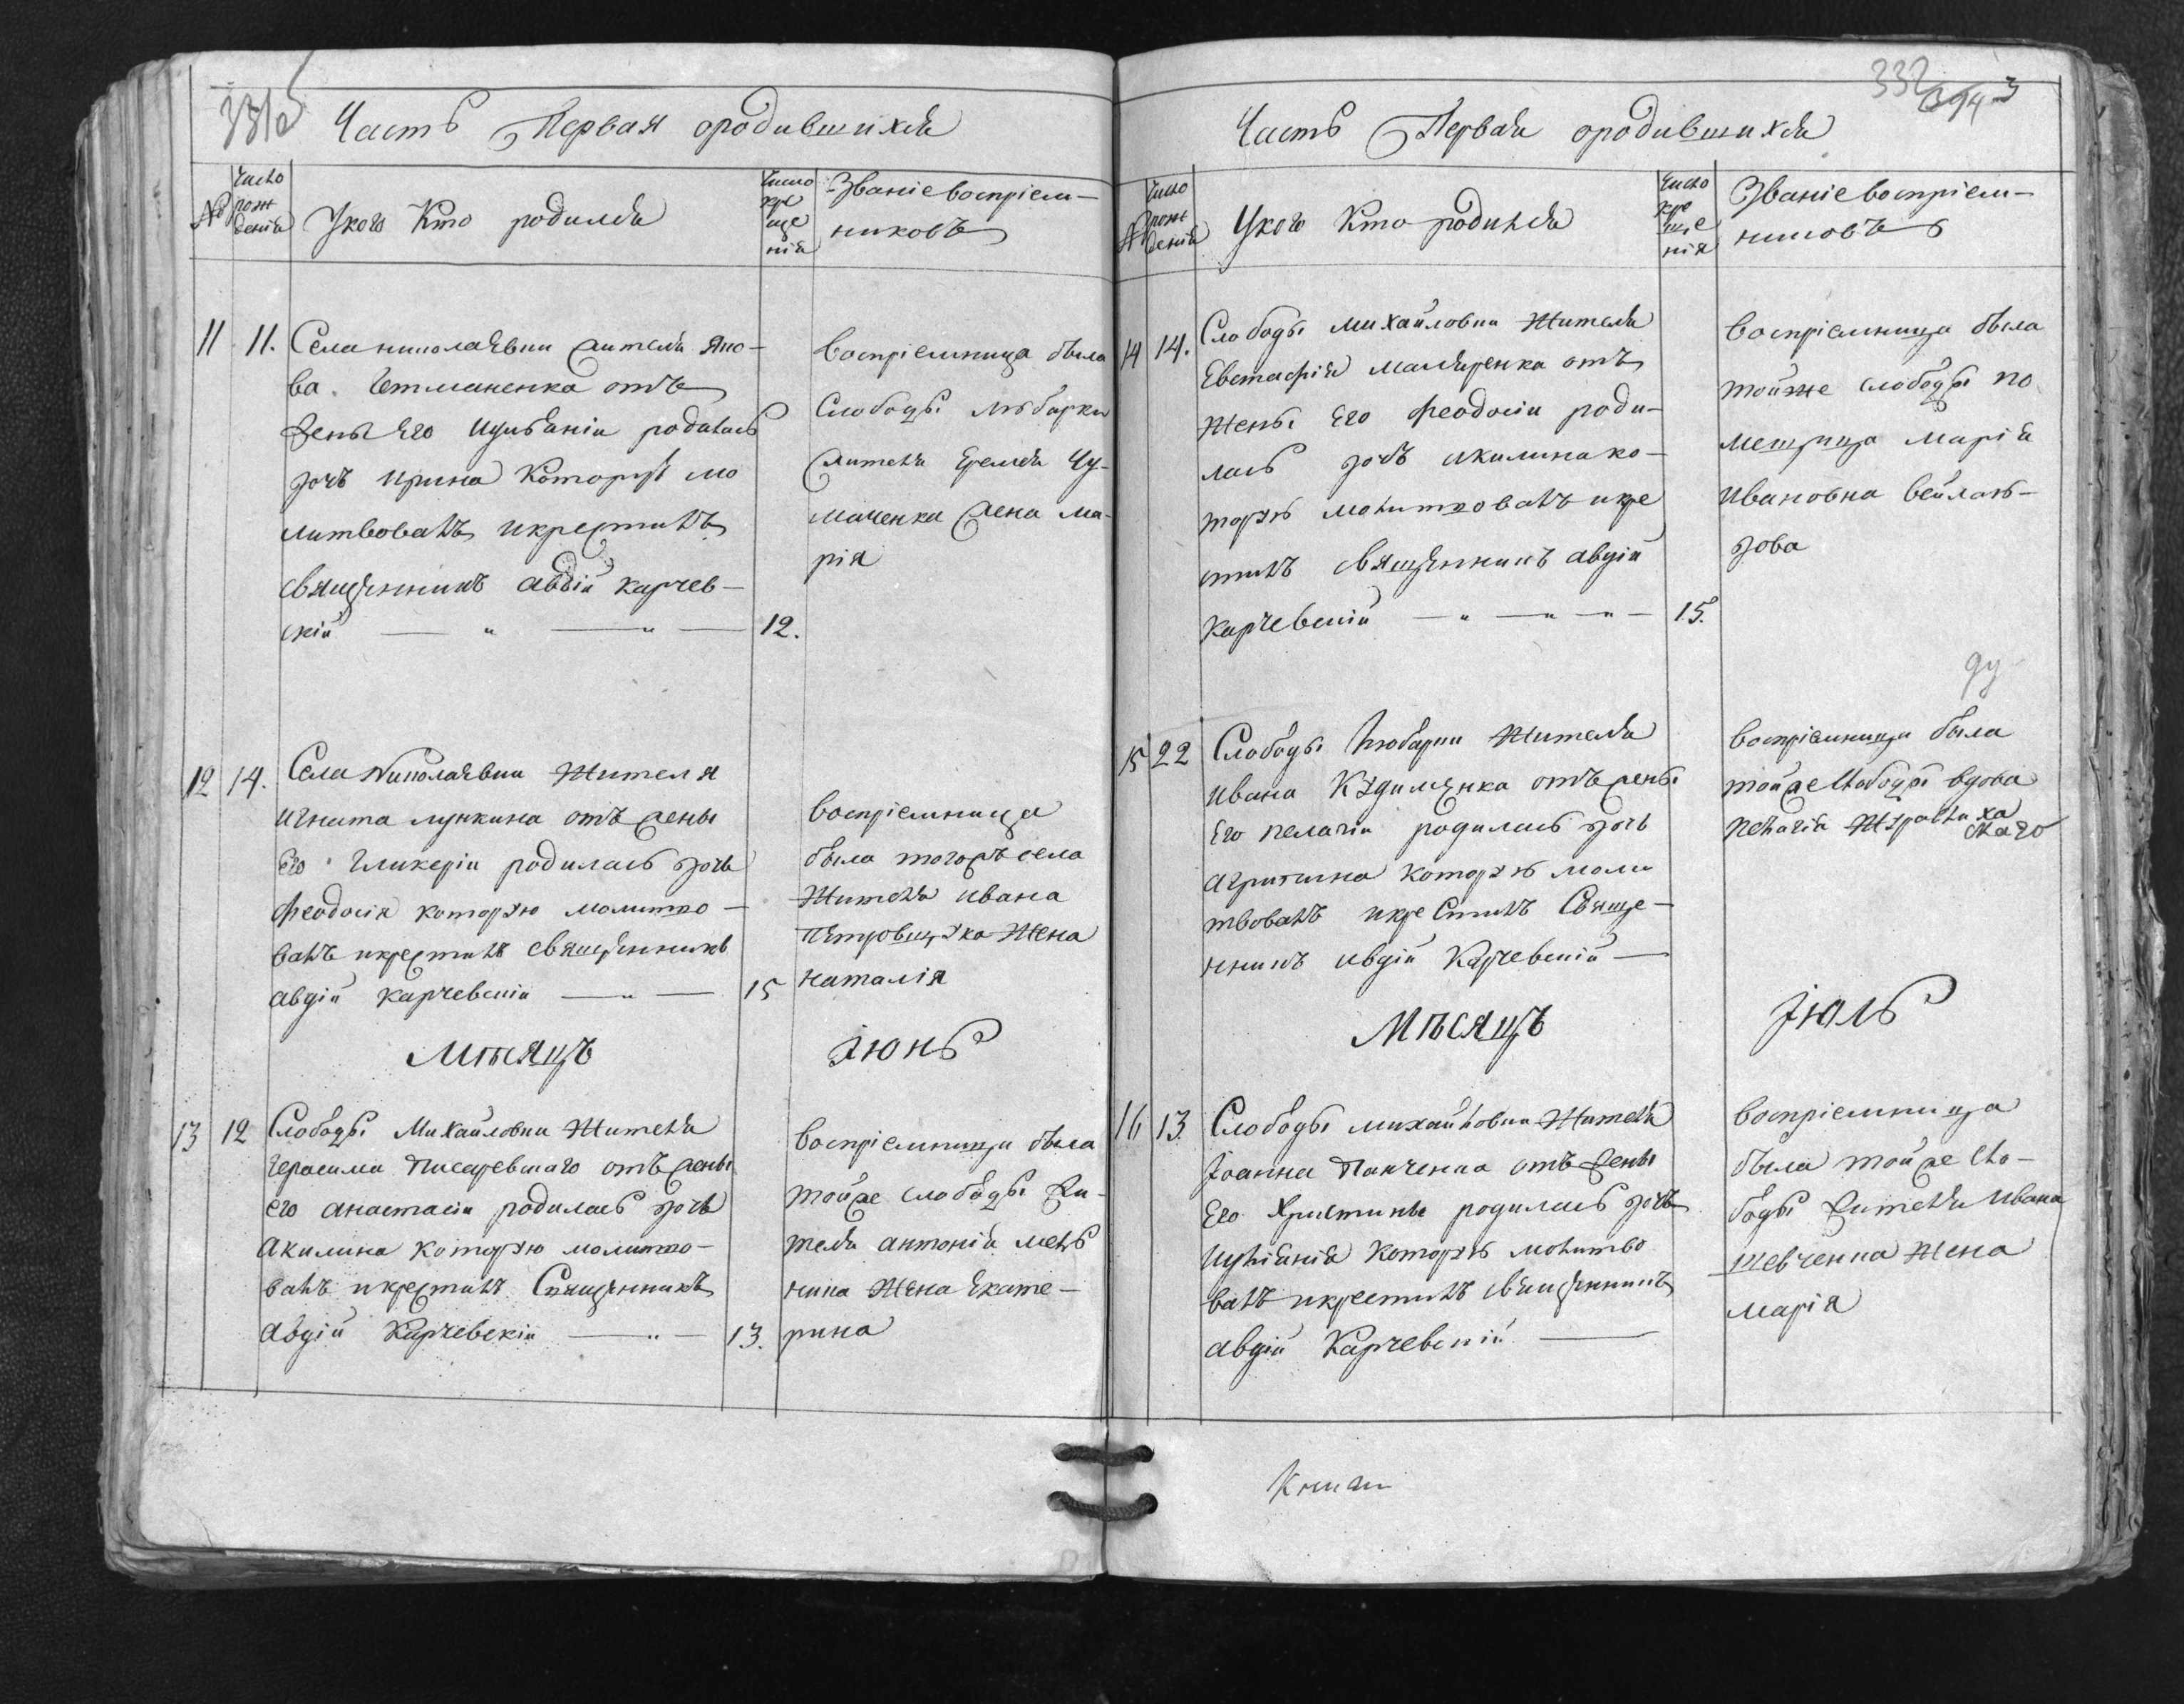 Часть Первая ородившихся
№
Число рождения
Укого Кто родился
Число крещения
Званіе воспріем-
никовъ
11 11. Села николаевки жителя яко-
ва Гетманенка отъ
жены Его Иуліаніи родилась
дочь ирина Которую мо
литвовалъ икрестилъ
священникъ авдій карчев-
скій — „ — „ — 12.
воспріемница была
Слободы любарки
жителя Еремея Чу-
маченка жена ма-
рія
12 14. Села Николаевки Жителя
игната лункина отъ жены
Его Гликеріи родилась дочь
феодосія которую молитво-
валъ икрестилъ священникъ
авдій карчевскій — „ — 15
воспріемница
была тогожъ села
Жителя ивана
Жена
наталія
Мѣсяцъ Іюнь
13 12 Слободы Михайловки Жителя
герасима Писаревскаго отъ жены
его анастасіи родилась дочь
акилина которую молитво-
валъ икрестилъ Священникъ
авдій Карчевскій — „ — 13.
воспріемница была
тойже слободы жи-
теля антонія мель
ника Жена Екате-
рина
332
Часть Первая ородившихся
№
Число рождения
Укого Кто родился
Число крещенія
Званіе воспріем-
никовъ
14 14. Слободы михайловки Жителя
Евстафія отъ
жены Его феодосіи роди-
лась дочь акилина ко-
торую молитвовалъ икре
стилъ священникъ авдій
карчевскій — „ — „ — „ — 15.
воспріемница была
тойже слободы по
мещица марія
ивановна
15 22 Слободы Любарки Жителя
ивана отъ жены
Его пелагіи родилась дочь
агрипина которую моли
твовалъ икрестилъ Свяще-
нникъ авдій Карчевскій —
воспріемница была
тойже слободы вдова
пелагія
Мѣсяцъ Іюль
16 13. Слободы михайловки Жителя
Іоанна Панченка отъ жены
Его Христины родилась дочь
Иуліанія которую молитво
валъ икрестилъ священникъ
авдій Карчевскій —
воспріемница
была тойже сло-
боды жителя ивана
шевченка жена
марія